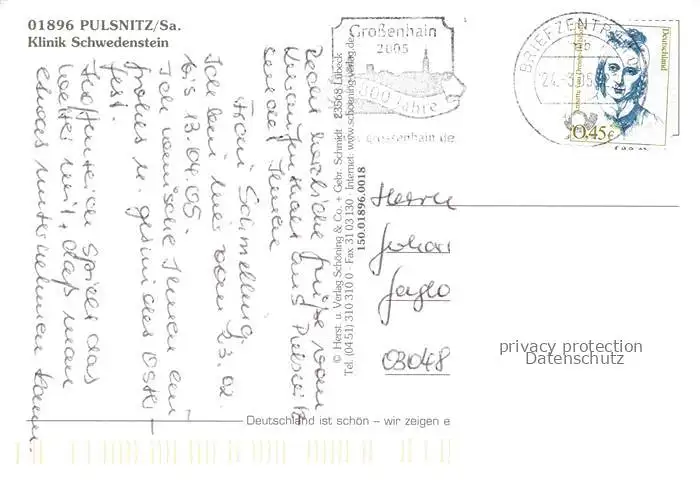 01896 PULSNITZ/Sa.
Klinik Schwedenstein
Großenhain
2005
800 Jahre
grossenhain.de
BRIEFZENTR
24.-3.05
Deutschland
0,45€
Recht herzliche Grüße vom
Kuraufenthalt aus Pulsnitz
sendet Ihnen
Frau Schmelling
Ich bin hier vom 23.02.
bis 13.04.05.
Ich wünsche Ihnen ein
frohes u. gesundes Oster-
fest.
Hoffentlich spielt das
Wetter mit, daß man
etwas unternehmen kann.
© Herst. u. Verlag Schöning & Co. - Gebr. Schmidt · 23568 Lübeck
Tel. (04 51) 310 310 0 · Fax 31 03 130 · Internet: www.schoening-verlag.de
150.01896.0018
Herrn
Johan
03048
privacy protection
Datenschutz
Deutschland ist schön – wir zeigen e